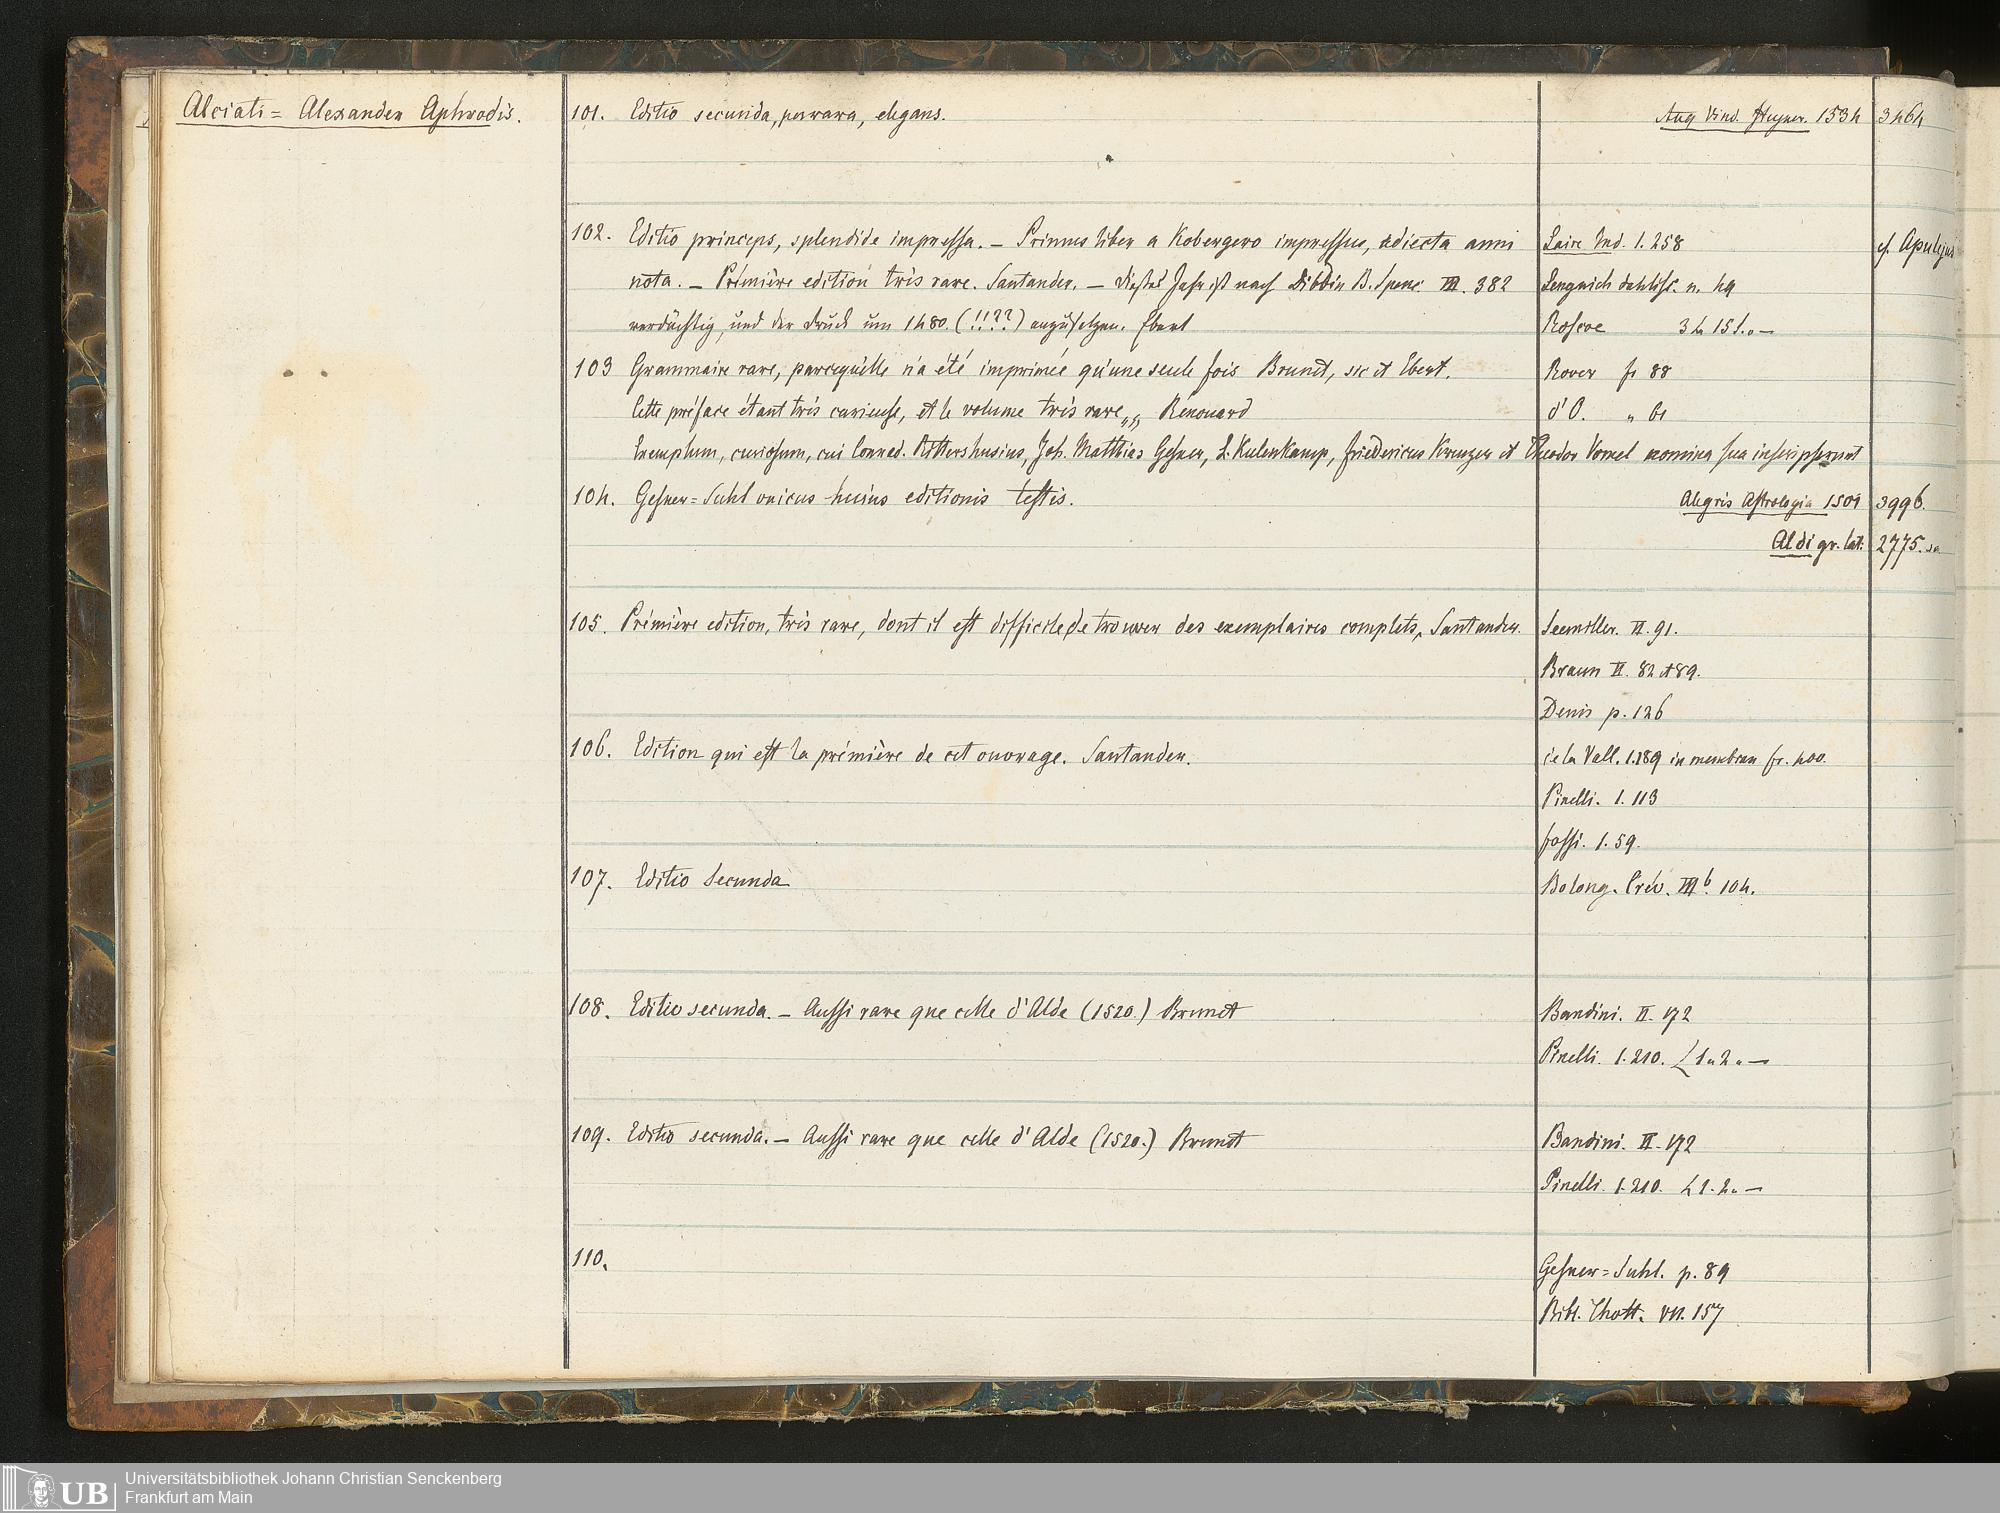 Alciati = Alexander Aphrodis.
101. Editio secunda, perrara, elegans. Aug Vind. Steyner. 1534 3464
102. Editio princeps, splendide impressa. – Primus liber a Kobergero impressus, adiecta anni Laire Ind. I. 258 cf. Apulejus
nota. – Prémière edition très rare. Santander. – Dieses Jahr ist nach Dibdin B. Spenc. III. 382 n. 49
verdächtig, und der Druck um 1480. (!!??) anzusetzen. Ebert Roscoe 3 L 15 s. „ –
103 Grammaire rare, parcequ'elle n'a été imprimée qu'une seule fois Brunet, sic et Ebert. Rover fr 88
Cette préface étant très curieuse, et le volume très rare „ Renouard d'O. „ 61
Exemplum, curiosum, cui Conrad. Rittershusius, Joh. Matthias Gesner, L. Kulenkamp, Friedericus Kreuzer et Theodor Vomel nomina sua inscripserunt
104. Gesner = Suhl unicus huius editionis testis. Alegris Astrologia 1501 3996.
Aldi gr. lat. 2775. sq
105. Prémière edition, très rare, dont il est difficile de trouver des exemplaires complets, Santander. Seemiller. II. 91.
Braun II. 82 et 89.
Denis p. 126
106. Edition qui est la prémière de cet ouvrage. Santander. de la Vall. I. 189 in membran fr. 400.
Pinelli. I. 113
Fossi. I. 59.
107. Editio Secunda Bolong. Crév. III b. 104.
108. Editio secunda. – Aussi rare que celle d'Alde (1520.) Brunet Bandini. II. 172
Pinelli. I. 210. L 1 „ 2 „ –
109. Editio secunda. – Aussi rare que celle d'Alde (1520.) Brunet Bandini. II. 172
Pinelli. I. 210. L 1. 2 „ –
110. Gesner = Suhl. p. 89
Bibl. Thott. VII. 157
UB Universitätsbibliothek Johann Christian Senckenberg
Frankfurt am Main